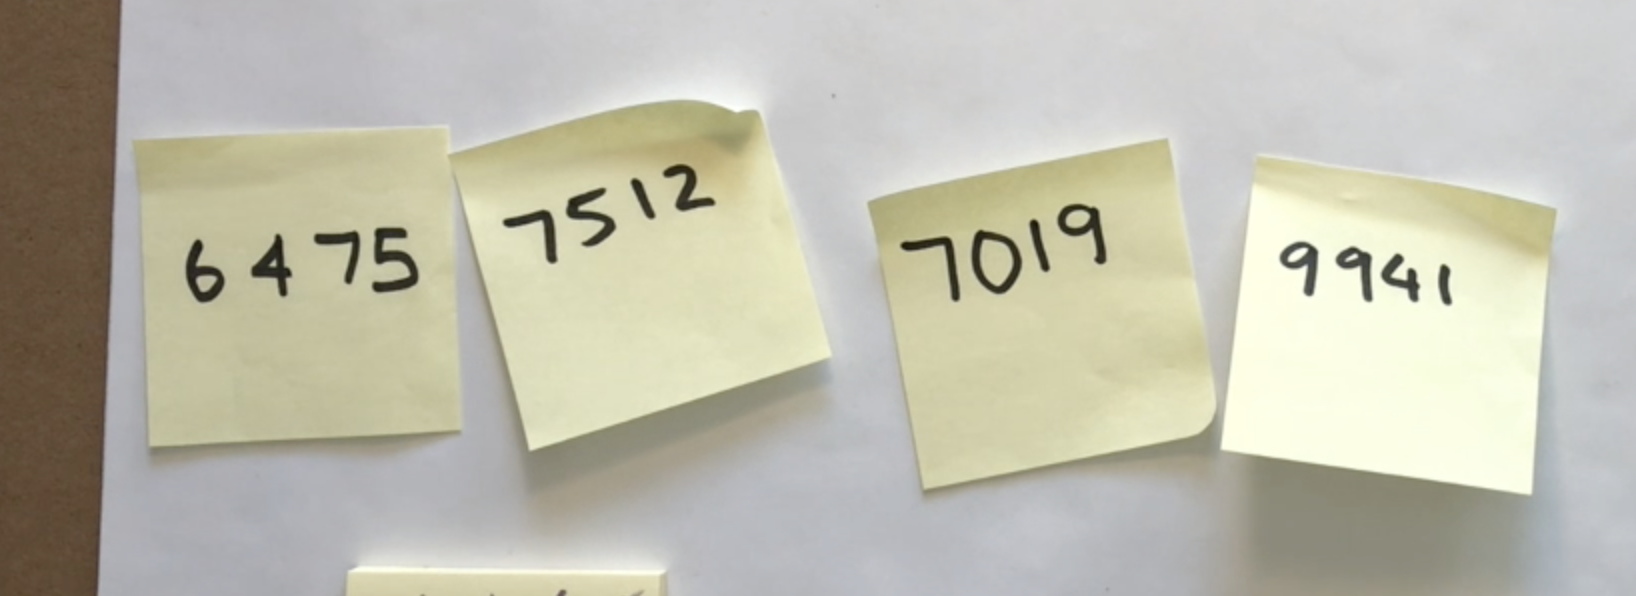 6475
7512
7019
9941